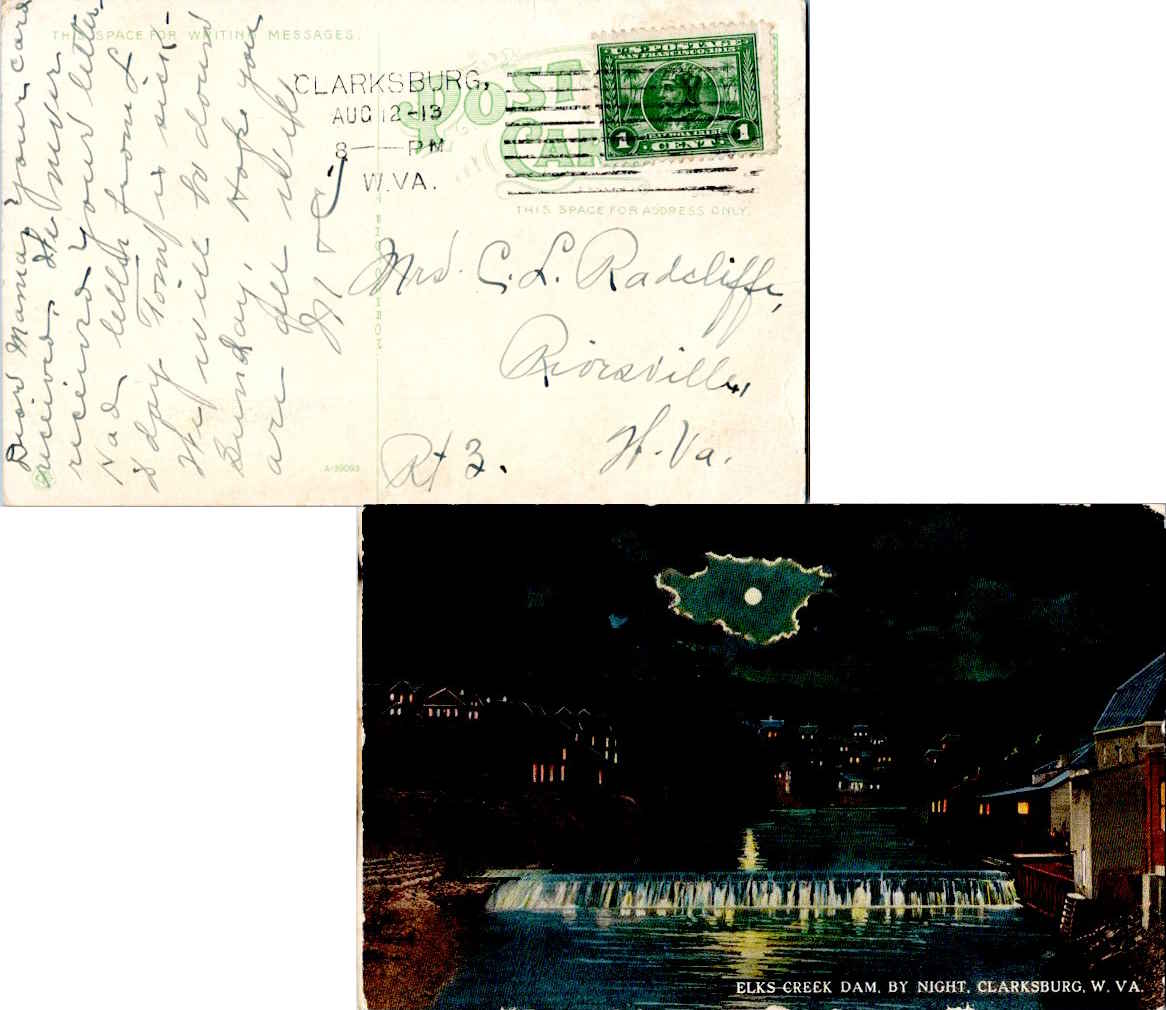 THIS SPACE FOR WRITING MESSAGES.
Dear Mama, Your card
received. We never
received your letter
Had letter from
today Tom is sick
He will be down
Sunday. Hope you
are all well
CLARKSBURG,
AUG 12-13
8 — PM
W.VA.
POST
CARD
U.S. POSTAGE
SAN FRANCISCO, 1915
BALBOA 1513
1 CENT 1
THIS SPACE FOR ADDRESS ONLY.
Mrs. C. L. Radcliffe,
Rivesville,
W. Va.
Rt 3.
A-39093
ELKS CREEK DAM, BY NIGHT, CLARKSBURG, W. VA.